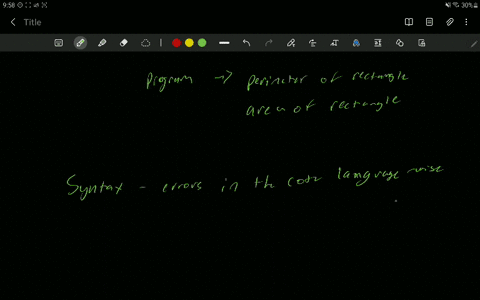 9:58
30%
Title
program → perimeter of rectangle
area of rectangle
Syntax - errors in the code language wise